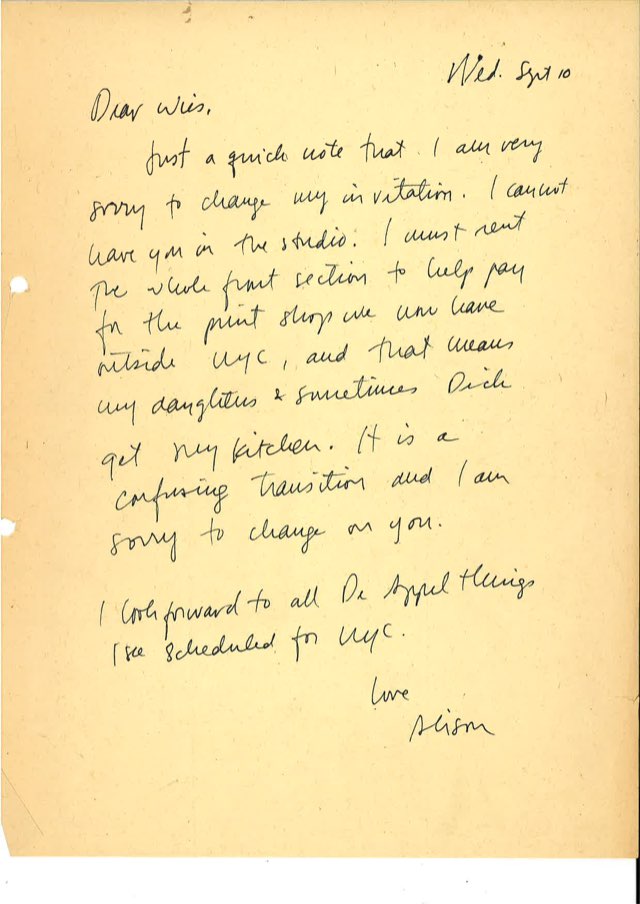 Wed. Sept 10
Dear Wies,
Just a quick note that I am very
sorry to change my invitation. I cannot
have you in the studio. I must rent
the whole front section to help pay
for the print shop we now have
outside NYC, and that means
my daughters & sometimes Dick
get my kitchen. It is a
confusing transition and I am
sorry to change on you.
I look forward to all De Appel things
I see scheduled for NYC.
love
Alison